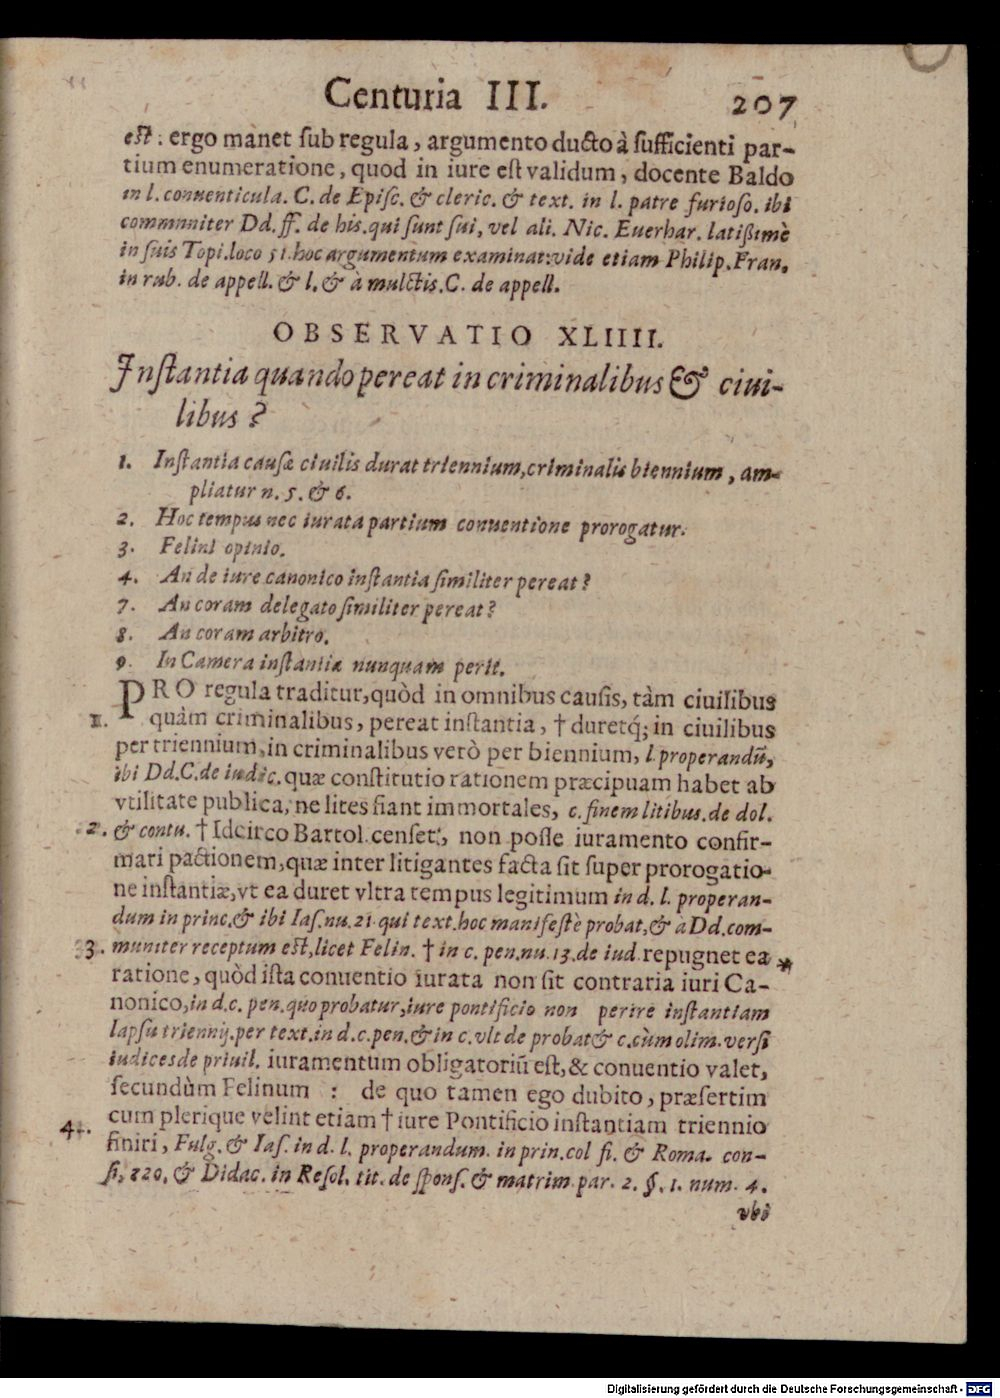 Centuria III. 207
est: ergo manet sub regula, argumento ducto à sufficienti par-
tium enumeratione, quod in iure est validum, docente Baldo
in l. conuenticula. C. de Episc. & cleric. & text. in l. patre furioso. ibi
commnniter Dd. ff. de his. qui sunt sui, vel ali. Nic. Euerhar. latißimè
in suis Topi. loco 51. hoc argumentum examinat: vide etiam Philip. Fran.
in rub. de appell. & l. & à mulctis. C. de appell.
OBSERVATIO XLIIII.
Instantia quando pereat in criminalibus & ciui-
libus?
1. Instantia causæ ciuilis durat triennium, criminalis biennium, am-
pliatur n. 5. & 6.
2. Hoc tempus nec iurata partium conuentione prorogatur.
3. Felini opinio.
4. An de iure canonico instantia similiter pereat?
7. An coram delegato similiter pereat?
8. An coram arbitro.
9. In Camera instantia nunquam perit.
PRO regula traditur, quòd in omnibus causis, tàm ciuilibus
1. quàm criminalibus, pereat instantia, † duretq́; in ciuilibus
per triennium, in criminalibus verò per biennium, l. properandū,
ibi Dd. C. de iudic. quæ constitutio rationem præcipuam habet ab
vtilitate publica, ne lites fiant immortales, c. finem litibus. de dol.
2. & contu. † Idcirco Bartol. censet, non posse iuramento confir-
mari pactionem, quæ inter litigantes facta sit super prorogatio-
ne instantiæ, vt ea duret vltra tempus legitimum in d. l. properan-
dum in princ. & ibi Ias. nu. 21. qui text. hoc manifestè probat, & a Dd. com-
3. muniter receptum est, licet Felin. † in c. pen. nu. 13. de iud. repugnet ea *
ratione, quòd ista conuentio iurata non sit contraria iuri Ca-
nonico, in d. c. pen. quo probatur, iure pontificio non perire instantiam
lapsu triennij. per text. in d. c. pen. & in c. vlt de probat & c. cùm olim. versi
iudices de priuil. iuramentum obligatoriū est, & conuentio valet,
secundùm Felinum : de quo tamen ego dubito, præsertim
cum plerique velint etiam † iure Pontificio instantiam triennio
4. finiri, Fulg. & Ias. in d. l. properandum. in prin. col fi. & Roma. con-
si. 820. & Didac. in Resol. tit. de spons. & matrim. par. 2. §. 1. num. 4.
vbi
Digitalisierung gefördert durch die Deutsche Forschungsgemeinschaft - DFG